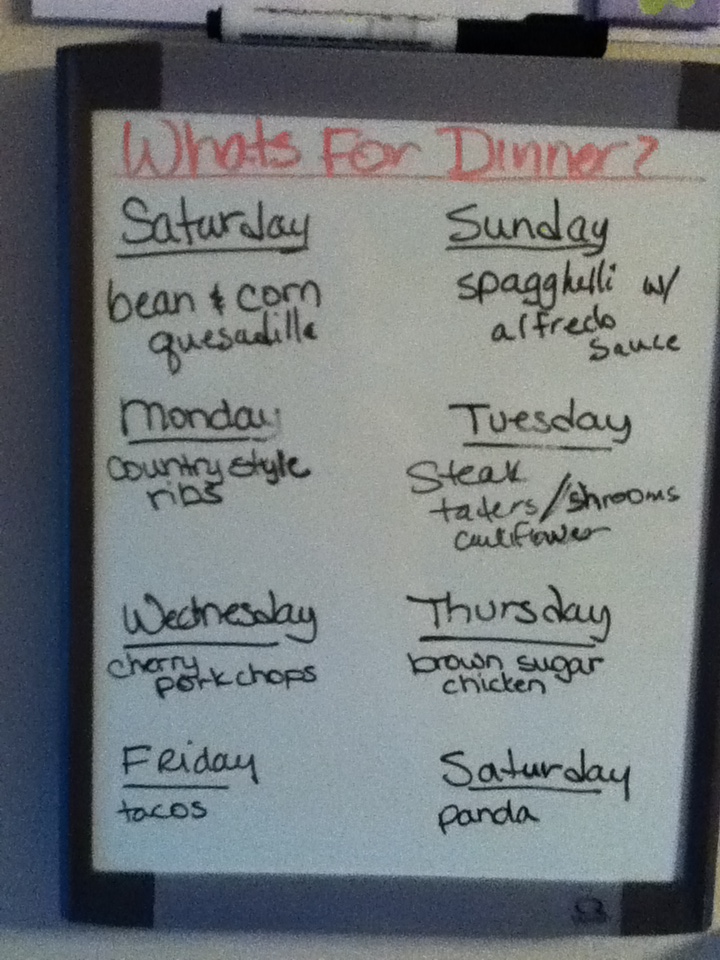 Whats For Dinner?
Saturday
bean & corn
quesadilla
Sunday
spagghetti w/
alfredo
sauce
Monday
country style
ribs
Tuesday
Steak
taters/shrooms
cauliflower
Wednesday
cherry
porkchops
Thursday
brown sugar
chicken
Friday
tacos
Saturday
panda